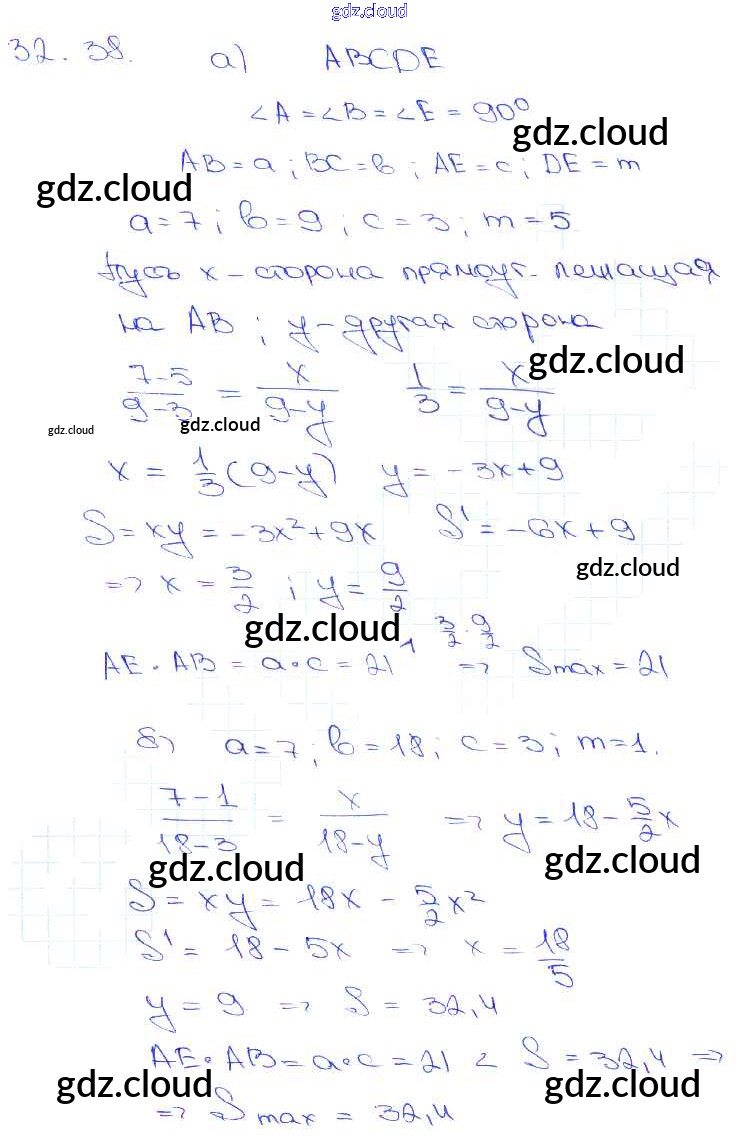 gdz.cloud
32.38. а) ABCDE
∠A = ∠B = ∠E = 90°
gdz.cloud
AB = a ; BC = b ; AE = c ; DE = m
gdz.cloud
a = 7 ; b = 9 ; c = 3 ; m = 5
Пусть x – сторона прямоуг. лежащая
на AB ; y – другая сторона
gdz.cloud
(7-5)/(9-3) = x/(9-y)   1/3 = x/(9-y)
gdz.cloud gdz.cloud
x = 1/3 (9-y)   y = -3x+9
S = xy = -3x² + 9x   S' = -6x + 9
gdz.cloud
=> x = 3/2 ; y = 9/2
gdz.cloud
3/2 · 9/2
AE · AB = a·c = 21 => Smax = 21
б) a = 7 ; b = 18 ; c = 3 ; m = 1.
(7-1)/(18-3) = x/(18-y) => y = 18 - 5/2 x
gdz.cloud gdz.cloud
S = xy = 18x - 5/2 x²
S' = 18 - 5x => x = 18/5
y = 9 => S = 32,4
AE·AB = a·c = 21 < S = 32,4 =>
gdz.cloud gdz.cloud
=> Smax = 32,4